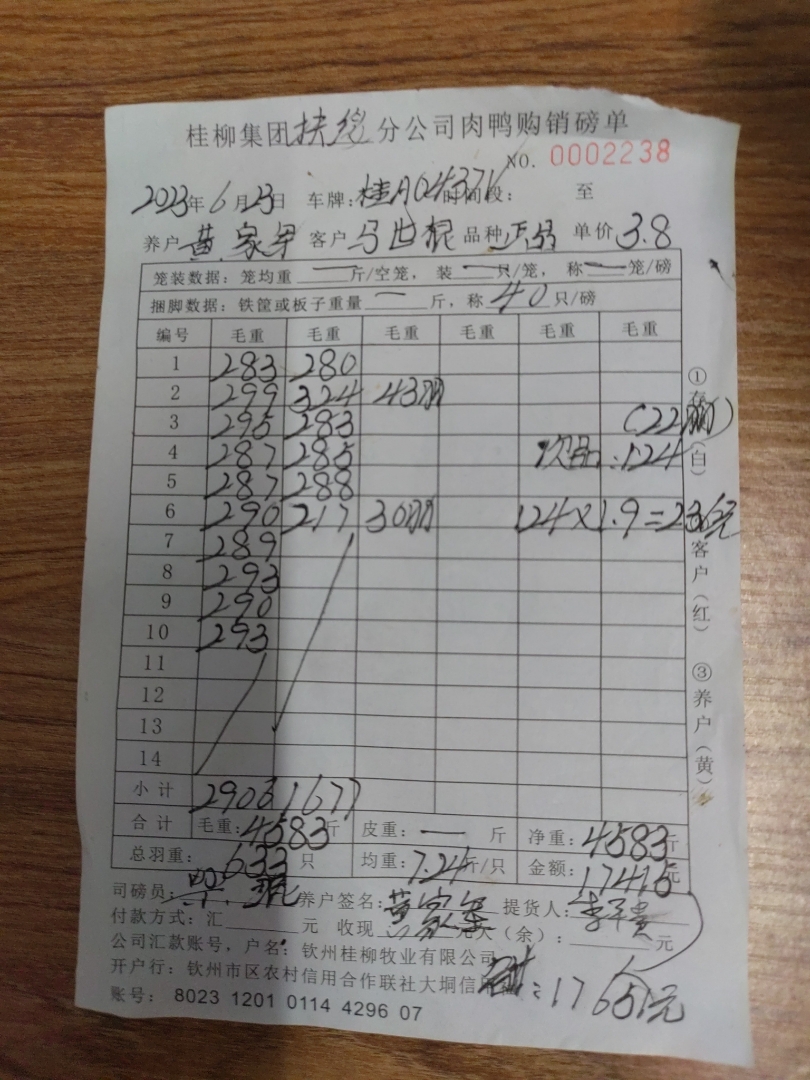 桂柳集团扶绥分公司肉鸭购销磅单
NO. 0002238
2023年6月23日 车牌: 时间段: 至
养户 黄家军 客户 马世棍 品种 正品 单价 3.8
笼装数据: 笼均重 — 斤/空笼, 装 — 只/笼, 称 — 笼/磅
捆脚数据: 铁筐或板子重量 — 斤, 称 40 只/磅
编号 毛重 毛重 毛重 毛重 毛重 毛重
1 283 280
2 299 324 43羽
3 295 283 (22羽)
4 287 285 次品:124
5 287 288
6 290 217 30羽 124×1.9=236元
7 289
8 293
9 290
10 293
11
12
13
14
小计 2906 1677
合计 毛重: 4583斤 皮重: — 斤 净重: 4583斤
总羽重: 633 只 均重: 7.24斤/只 金额: 17415元
司磅员: 养户签名: 黄家军 提货人:
付款方式: 汇 元 收现 (余): 元
公司汇款账号, 户名: 钦州桂柳牧业有限公司
开户行: 钦州市区农村信用合作联社大垌信用 :17651元
账号: 8023 1201 0114 4296 07
① (白)
客户(红)
③养户(黄)